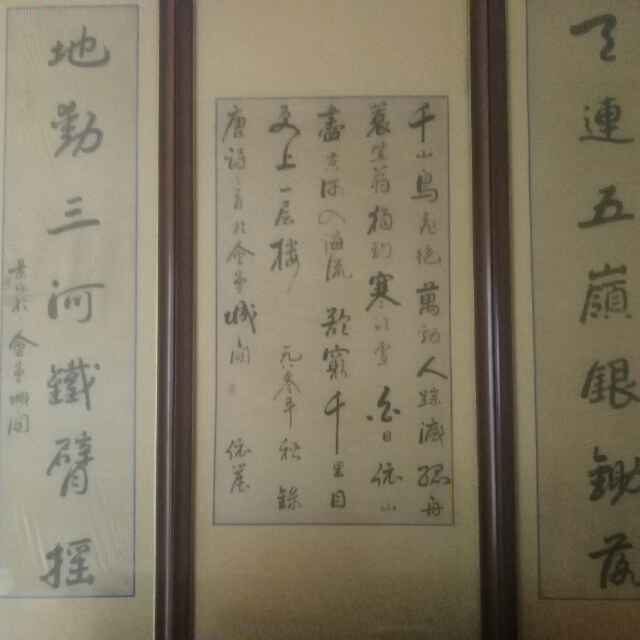 天連五嶺銀鋤落
千山鳥飛絕萬徑人踪滅孤舟
蓑笠翁獨釣寒江雪 白日依山
盡黃河入海流 欲窮千里目
更上一層樓 年秋 錄
唐詩二首於金
地動三河鐵臂搖
於金